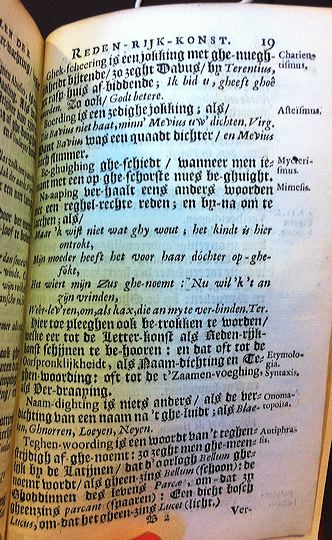 REDEN-RIJK-KONST. 19
Ghek-scheering is een jokking met ghe-nuegh- Charien-
bijtende/ zo zeght Davus/ by Terentius, tismus.
huis af-biddende; Ik bid u, gheeft ghoê
Zo ook/ Godt betert.
Boerding is een zedighe jokking; als/ Asteïsmus.
Bavius niet haat, minn' Mevius uw' dichten. Virg.
Bavius was een quaadt dichter/ en Mevius
slimmer.
Be-ghuighing ghe-schiedt/ wanneer men ie- Mycteris-
mant met een op ghe-schorste nues be-ghuight. mus.
Na-aaping ver-haalt eens anders woorden Mimesis.
met een reghel-rechte reden; en by-na om te
als/
Maar 'k wijf niet wat ghy wout, het kindt is hier
ontrokt,
Mijn moeder heeft het voor haar dóchter op-ghe-
fókt,
Het wiert mijn Zus ghe-noemt: Nu wil 'k 't an
zijn vrinden,
Weêr-lev'ren, om, als hax, die an my te ver-binden. Ter.
Hier toe pleeghen ook be-trokken te worden/
welke eer tot de Letter-konst als Reden-rijk-
konst schijnen te be-hooren: en dat oft tot de
Oorspronklijkheidt, als Naam-dichting en Te- Etymolo-
ghen-woording: oft tot de t'Zaamen-voeghing, gia. Syntaxis.
als Ver-draaping.
Naam-dighting is niets anders/ als de ver- Onoma-
dichting van een naam na 't ghe-luidt; als Blae- topoiia.
en, Ghnorren, Loeyen, Neyen.
Teghen-woording is een woordt van 't teghen- Antiphra-
strijdigh af-ghe-noemt: zo zeght men ghe-meen- sis.
lijk by de Latijnen/ dat d' oorlogh Bellum ghe-
noemt wordt/ als gheen-zing Bellum (schoon): de
Ghoddinnen des levens Parcæ, om-dat zy
gheen-zing parcant (spaaren): Een dicht bosch
Lucus, om-dat het gheen-zing Lucet (licht.)
B 2 Ver-